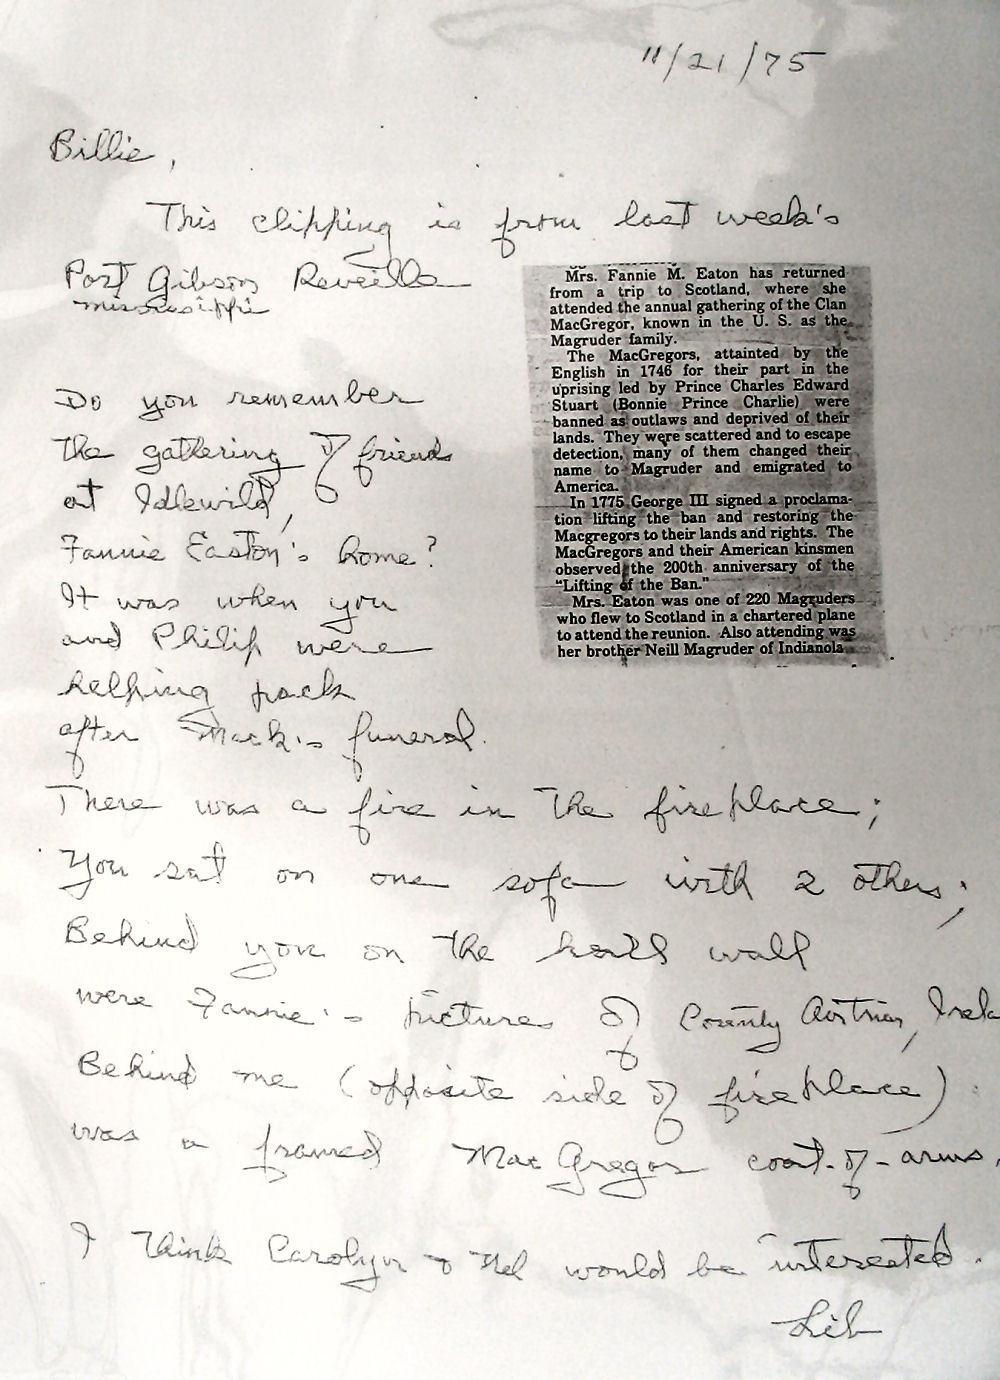 11/21/75
Billie,
This clipping is from last week's
Port Gibson Reveille
Mississippi
Mrs. Fannie M. Eaton has returned
from a trip to Scotland, where she
attended the annual gathering of the Clan
MacGregor, known in the U. S. as the
Magruder family.
The MacGregors, attainted by the
English in 1746 for their part in the
uprising led by Prince Charles Edward
Stuart (Bonnie Prince Charlie) were
banned as outlaws and deprived of their
lands. They were scattered and to escape
detection, many of them changed their
name to Magruder and emigrated to
America.
In 1775 George III signed a proclama-
tion lifting the ban and restoring the
Macgregors to their lands and rights. The
MacGregors and their American kinsmen
observed the 200th anniversary of the
"Lifting of the Ban."
Mrs. Eaton was one of 220 Magruders
who flew to Scotland in a chartered plane
to attend the reunion. Also attending was
her brother Neill Magruder of Indianola
Do you remember
the gathering of friends
at Idlewild,
Fannie Easton's home?
It was when you
and Philip were
helping pack
after Mack's funeral.
There was a fire in the fireplace;
You sat on one sofa with 2 others;
Behind you on the hall wall
were Fannie's pictures of County Antrim, Irela
Behind me (opposite side of fireplace)
was a framed MacGregor coat-of-arms.
I think Carolyn & would be interested.
Lib